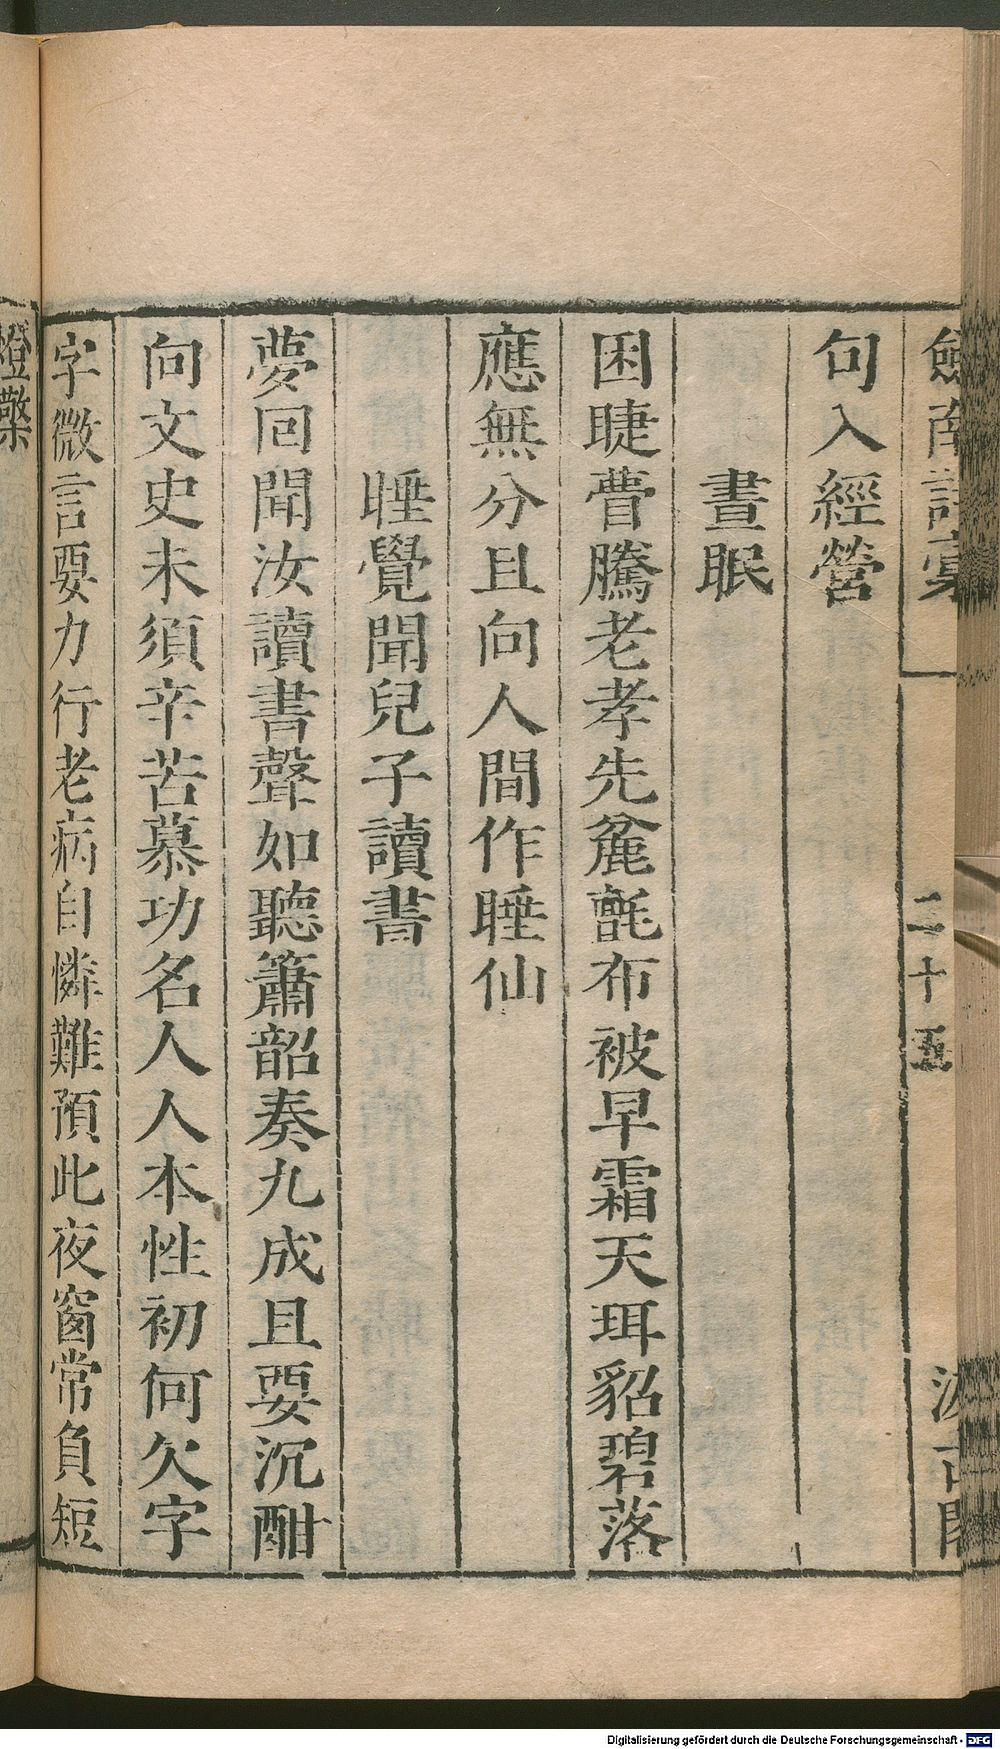 劍南詩稾 二十五 汲古閣
句入經營
晝眠
困睫瞢騰老孝先麄氈布被早霜天珥貂碧落
應無分且向人間作睡仙
睡覺聞兒子讀書
夢回聞汝讀書聲如聽簫韶奏九成且要沉酣
向文史未須辛苦慕功名人人本性初何欠字
字微言要力行老病自憐難預此夜窗常負短
燈檠
Digitalisierung gefördert durch die Deutsche Forschungsgemeinschaft - DFG